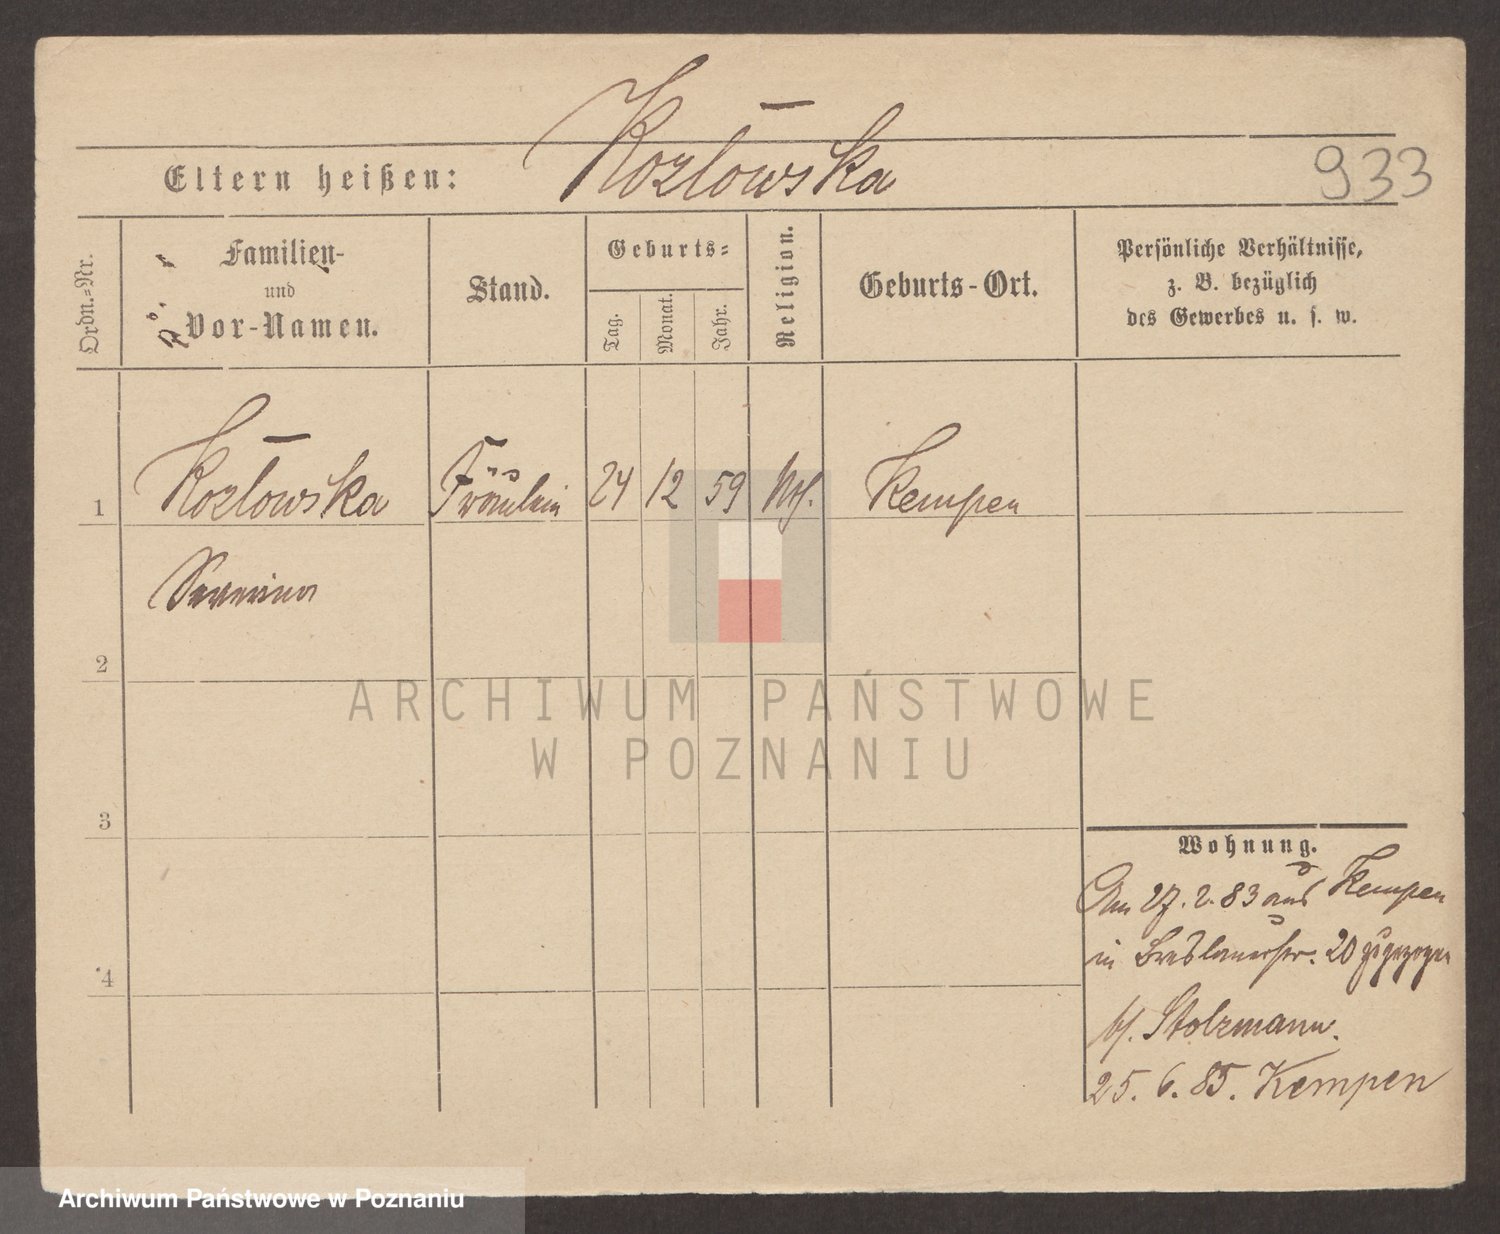 Kozłowska
Eltern heißen:
933
Ordn.=Nr.
Familien-
und
Vor-Namen.
Stand.
Geburts=
Tag.
Monat.
Jahr.
Religion.
Geburts-Ort.
Persönliche Verhältnisse,
z. B. bezüglich
des Gewerbes u. s. w.
1 Kozłowska Fräulein 24 12 59 Kempen
Severina
2
ARCHIWUM PAŃSTWOWE
W POZNANIU
3
Wohnung.
Am 27. 2. 83 aus Kempen
in Breslauerstr. 20 zugezogen
bei Stolzmann.
4
25. 6. 85. Kempen
Archiwum Państwowe w Poznaniu